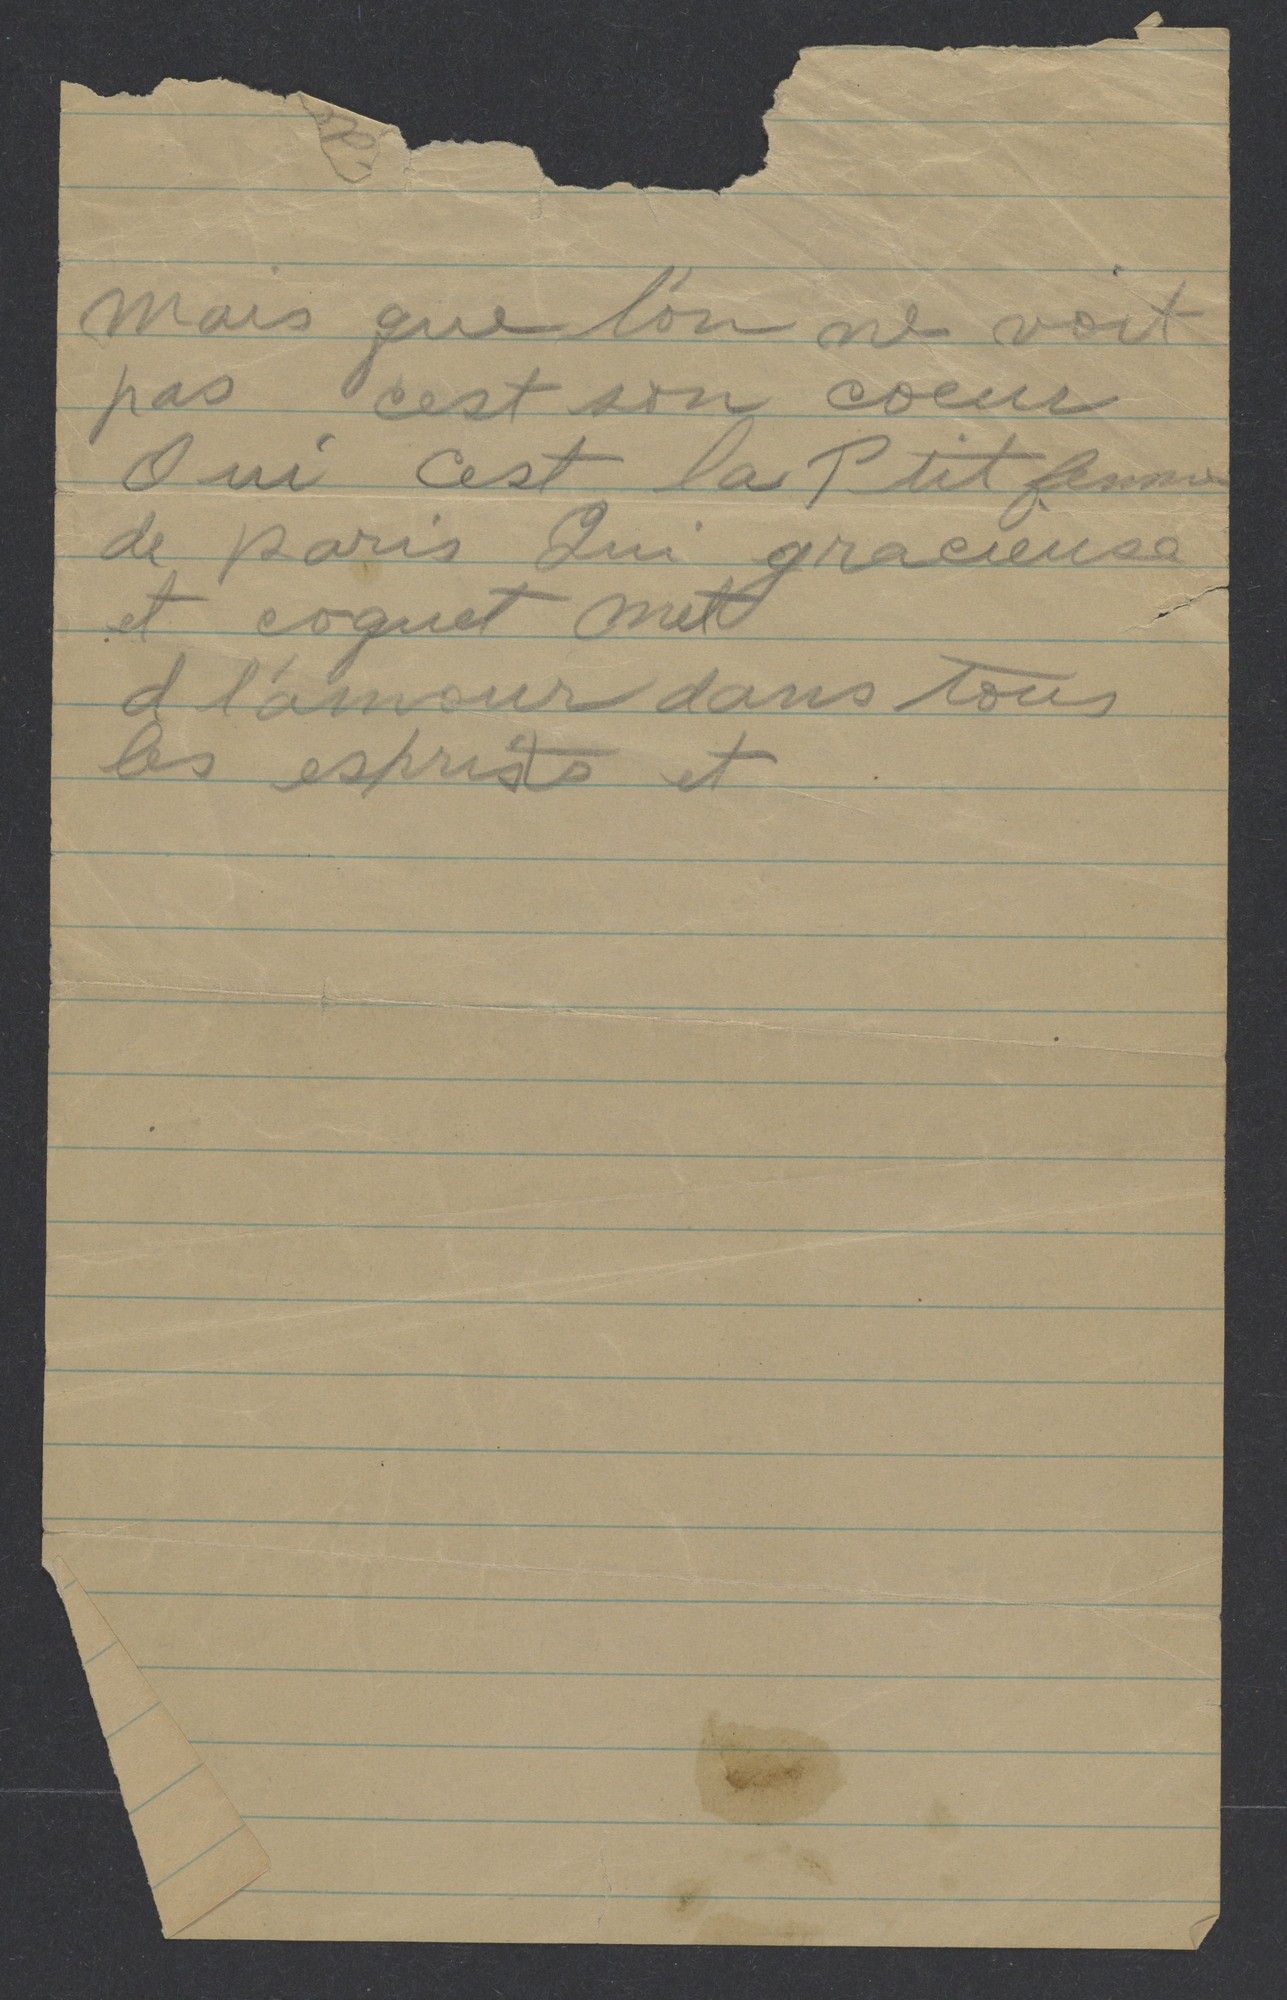 mais que l'on ne voit
pas cest son coeur
Oui cest la P'tit femme
de paris Qui gracieuse
et coquet met
d l'amour dans tous
les esprits et